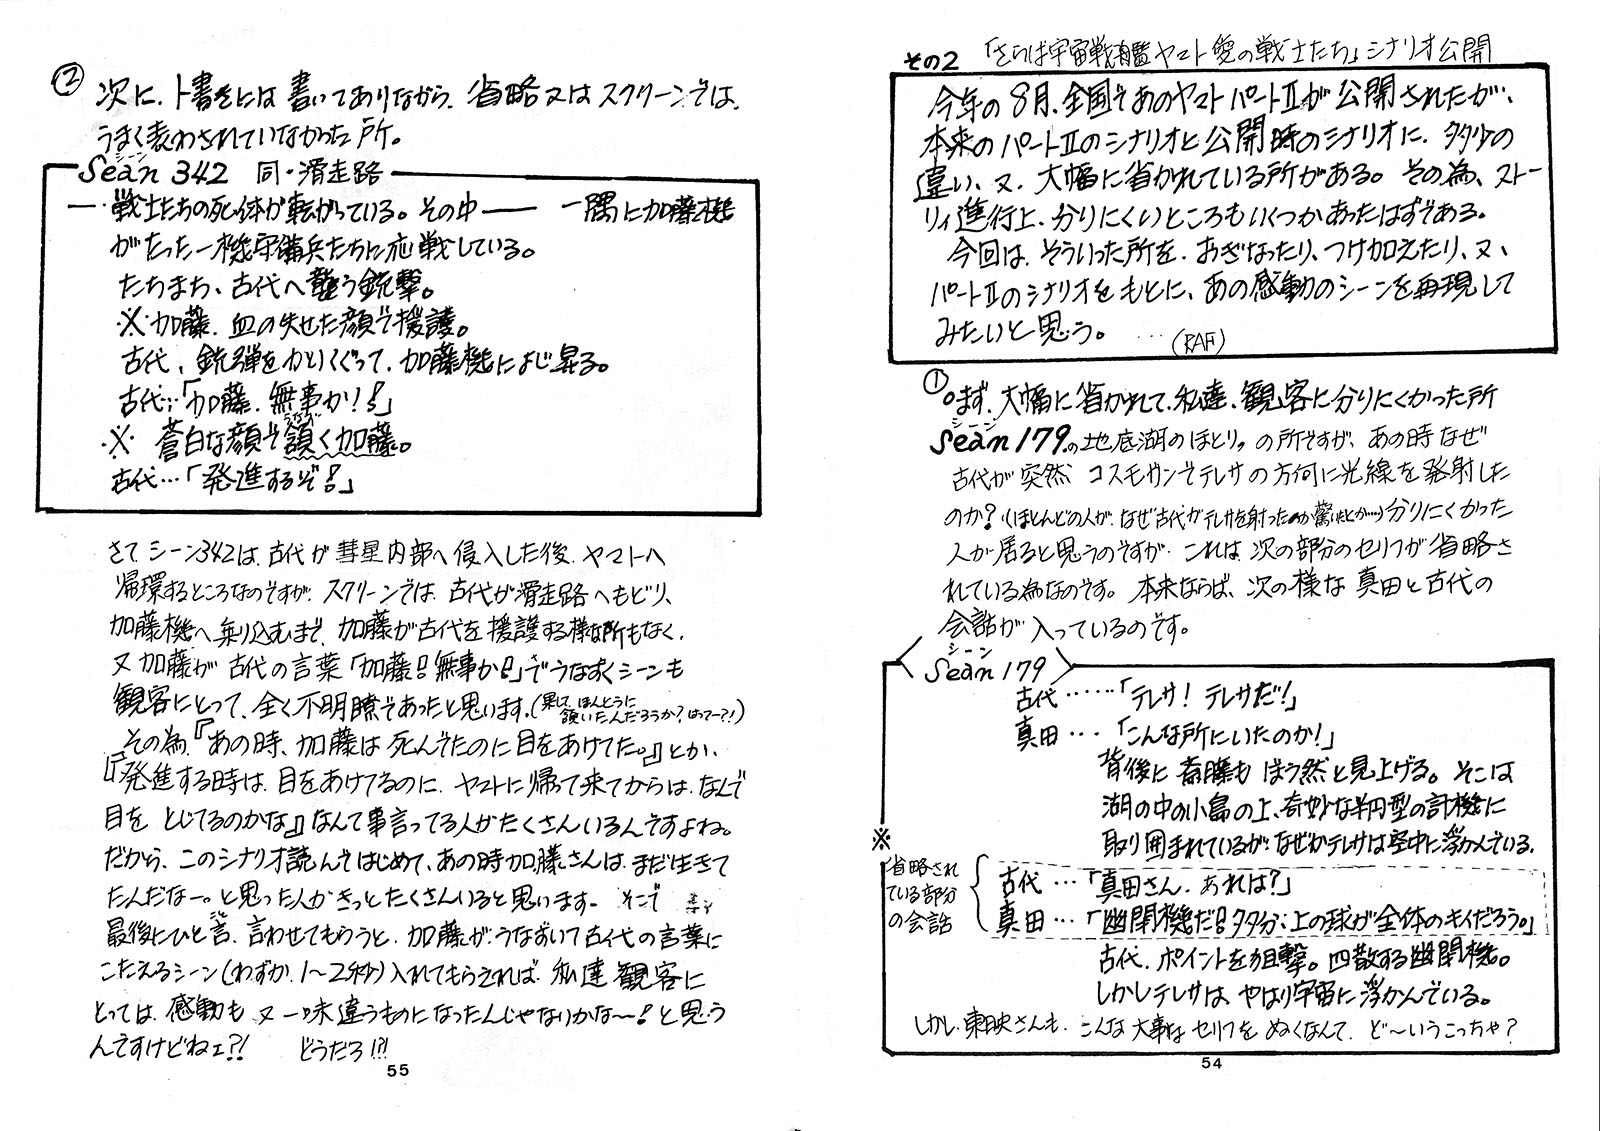 その2 「さらば宇宙戦艦ヤマト愛の戦士たち」シナリオ公開
今年の8月、全国であのヤマトパートⅡが公開されたが、
本来のパートⅡのシナリオと公開時のシナリオに、多少の
違い、又、大幅に省かれている所がある。その為、ストー
リィ進行上、分りにくいところもいくつかあったはずである。
今回は、そういった所を、おぎなったり、つけ加えたり、又、
パートⅡのシナリオをもとに、あの感動のシーンを再現して
みたいと思う。 ････(RAF)
① 。まず、大幅に省かれて、私達、観客に分りにくかった所
シーン
Sean 179.の地底湖のほとり〟の所ですが、あの時なぜ
古代が突然、コスモガンでテレサの方向に光線を発射した
のか?(ほとんどの人が、なぜ古代がテレサを射ったのか驚いたとか…)分りにくかった
人が居ると思うのですが、これは、次の部分のセリフが省略さ
れている為なのです。本来ならば、次の様な真田と古代の
会話が入っているのです。
シーン
Sean 179
古代……「テレサ! テレサだ!」
真田…「こんな所にいたのか!」
背後に斎藤もぼう然と見上げる。そこは
湖の中の小島の上、奇妙な半円型の計機に
取り囲まれているが、なぜかテレサは空中に浮かんでいる。
※
省略され
ている部分
の会話
古代…「真田さん、あれは?」
真田…「幽閉機だ!多分、上の球が全体のキイだろう。」
古代、ポイントを狙撃。四散する幽閉機。
しかしテレサは、やはり宇宙に浮かんでいる。
しかし、東映さんも、こんな大事なセリフをぬくなんて、ど〜いうこっちゃ?
54
② 次に、ト書きには書いてありながら、省略又はスクリーンでは、
うまく表わされていなかった所。
シーン
Sean 342 同・滑走路
―・戦士たちの死体が転がっている。その中―― 一隅に加藤機
がたった一機守備兵たちに応戦している。
たちまち、古代へ襲う銃撃。
※加藤、血の失せた顔で援護。
古代、銃弾をかいくぐって、加藤機によじ昇る。
古代…「加藤、無事か!!」
うなず
※ 蒼白な顔で頷く加藤。
古代…「発進するぞ!」
さて、シーン342は、古代が彗星内部へ侵入した後、ヤマトへ
帰環するところなのですが、スクリーンでは、古代が滑走路へもどり、
加藤機へ乗り込むまで、加藤が古代を援護する様な所もなく、
又加藤が古代の言葉「加藤!無事か!」でうなずくシーンも
観客にとって、全く不明瞭であったと思います。(果して、ほんとうに
頷いたんだろうか?はてー?!)
その為、『あの時、加藤は死んでたのに目をあけてた。』とか、
『発進する時は、目をあけてるのに、ヤマトに帰って来てからは、なんで
目をとじてるのかな』なんて事言ってる人がたくさんいるんですよね。
だから、このシナリオ読んではじめて、あの時加藤さんは、まだ生きて
たんだなー。と思った人がきっとたくさんいると思います。そこで
最後にひと言、言わせてもらうと、加藤が、うなずいて古代の言葉に
こたえるシーン(わずか、1〜2秒)入れてもらえれば、私達観客に
とっては、感動も又一味違うものになったんじゃないかな〜!と思う
んですけどねェ?! どうだろ!?!
55